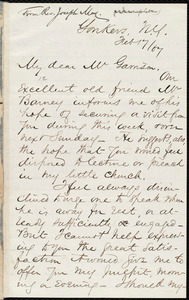 From Rev. Joseph May.
Yonkers, N.Y.
Feb 17/67
My dear Mr Garrison,
An
excellent old friend Mr
Barney informs me of his
hope of securing a visit from
you during this week over
next Sunday. He suggests also
the hope that you may feel
disposed to lecture or preach
in my little church.
I feel always
disinclined to urge one to speak when
he is away for rest, or al-
ready sufficiently engaged.
But I cannot help express-
ing to you the great satis-
faction it would give me to
offer you my pulpit morn-
ing or evening. Should my